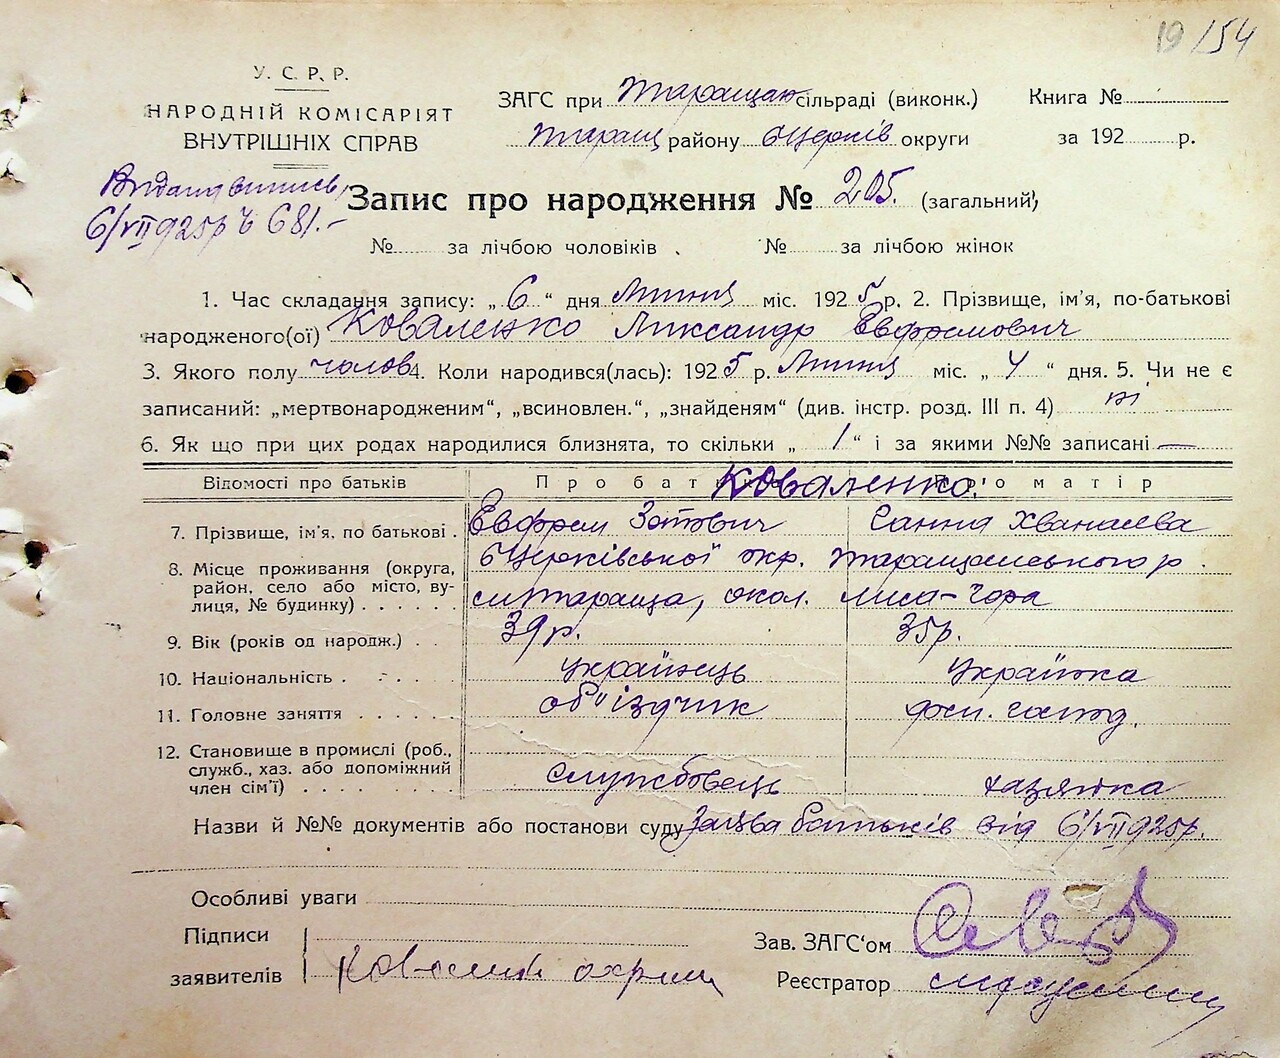 19/54
У. С. Р. Р.
НАРОДНІЙ КОМІСАРІЯТ
ВНУТРІШНІХ СПРАВ
ЗАГС при Таращан сільраді (виконк.)
Книга №
Таращ району БЦерків округи
за 192 р.
Видана виписъ
6/VII 925р № 681.-
Запис про народження № 205. (загальний)
№ за лічбою чоловіків № за лічбою жінок
1. Час складання запису: „ 6 “ дня Липня міс. 1925 р. 2. Прізвище, ім'я, по-батькові
народженого(ої) Коваленко Александр Евфремович
3. Якого полу чолов 4. Коли народився(лась): 1925 р. Липня міс. „ 4 “ дня. 5. Чи не є
записаний: „мертвонародженим“, „всиновлен.“, „знайденям“ (див. інстр. розд. III п. 4) ні
6. Як що при цих родах народилися близнята, то скільки „ 1 “ і за якими №№ записані —
Відомості про батьків
Про батька
Про матір
Коваленко
7. Прізвище, ім'я, по батькові . Евфрем Зотович Ганна Хванасева
8. Місце проживання (округа, район, село або місто, вулиця, № будинку) . . . . . . БЦерківської окр. Таращанського р.
Тараща, окол. Лиса-Гора
9. Вік (років од народж.) . . 39р. 35р.
10. Національність . . . . . українець українка
11. Головне заняття . . . . . . об'їздчик дом. господ.
12. Становище в промислі (роб., служб., хаз. або допоміжний член сім'ї) . . . . . . . службовець хазяйка
Назви й №№ документів або постанови суду Заява батьків від 6/VII 925р.
Особливі уваги
Підписи
заявителів
Зав. ЗАГС'ом
Реєстратор